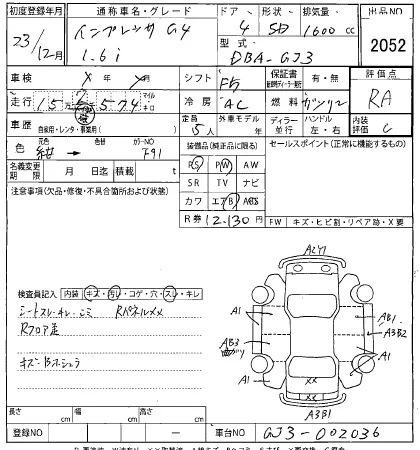 初度登録年月 通称車名・グレード ドア 形状 排気量 出品NO
23/12月 インプレッサ G4 1.6i 4 SD 1600 cc
型式 DBA-GJ3 2052
車検 × 年 × 月 シフト F5 保証書 有・無 評価点
走行 15万2574 マイル キロ 冷房 AC 燃料 ガソリン RA
車歴 自家用・レンタ・事業用( ) 定員 5人 外車モデル年 ディーラー 並行 ハンドル 左・右 内装評価 C
色 元色 紺 → カラーNO F91 装備品(純正品に限る) セールスポイント(正常に機能するもの)
名義変更期限 月 日迄 積載 t PS PW AW
注意事項(欠品・修復・不具合箇所および状態) SR TV ナビ
カワ エアB ABS
R券 12,130円 FW キズ・ヒビ割・リペア跡・X要
A2Y1
検査員記入 内装 キズ・汚レ・コゲ・穴・スレ・キレ
シートスレ・キレ・コミ RパネルXX
Rフロア歪
キズ・Bホシュウ
A1
AB1
A3B2
AB3
A1
A1
XX
XX
A3B1
長さ cm 幅 cm 高さ cm
登録NO ー 車台NO GJ3-002036